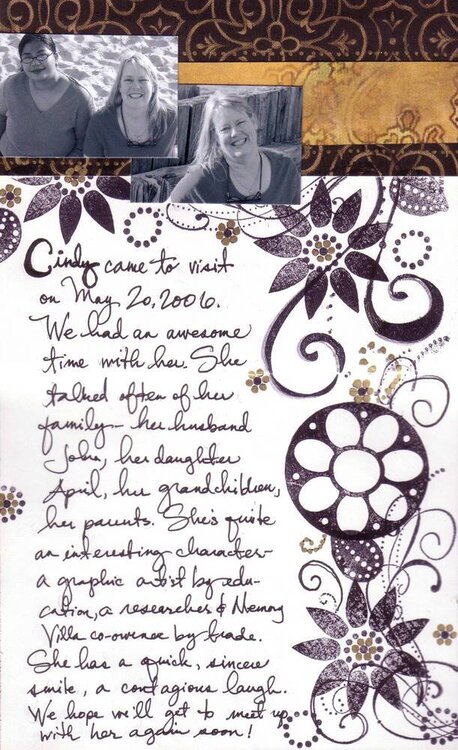 Cindy came to visit
on May 20, 2006.
We had an awesome
time with her. She
talked often of her
family - her husband
John, her daughter
April, her grandchildren,
her parents. She's quite
an interesting character -
a graphic artist by edu-
cation, a researcher & Memory
Villa co-owner by trade.
She has a quick, sincere
smile, a contagious laugh.
We hope we'll get to meet up
with her again soon!